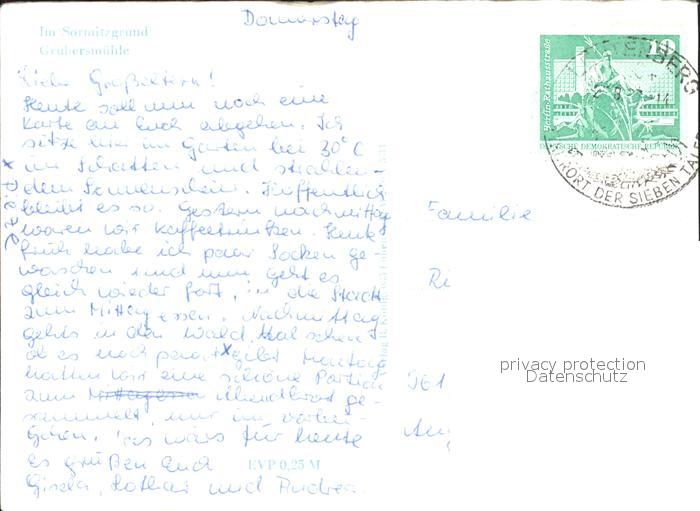 Donnerstag
Im Sormitzgrund
Grubersmühle
Liebe Großeltern!
Heute soll nun noch eine
Karte an Euch abgehen. Ich
sitze hier im Garten bei 30°C
im Schatten und strahlen-
dem Sonnenschein. Hoffentlich
bleibt es so. Gestern nachmittag
waren wir Kaffeetrinken. Heute
früh habe ich paar Socken ge-
waschen und nun geht es
gleich wieder fort, in die Stadt
zum Mittagessen. Nachmittag
gehts in den Wald. Mal sehen
ob es noch gibt Montag
hatten wir eine schöne Portion
zum Mittagessen Abendbrot ge-
sammelt, nur im vorbei-
gehen. Das wärs für heute
es grüßen Euch
Gisela, Lothar und Andrea.
EVP 0,25 M
10
Berlin-Rathausstraße
DEUTSCHE DEMOKRATISCHE REPUBLIK
ENBERG
ORT DER SIEBEN TÄLER
Familie
Ri
961
privacy protection
Datenschutz